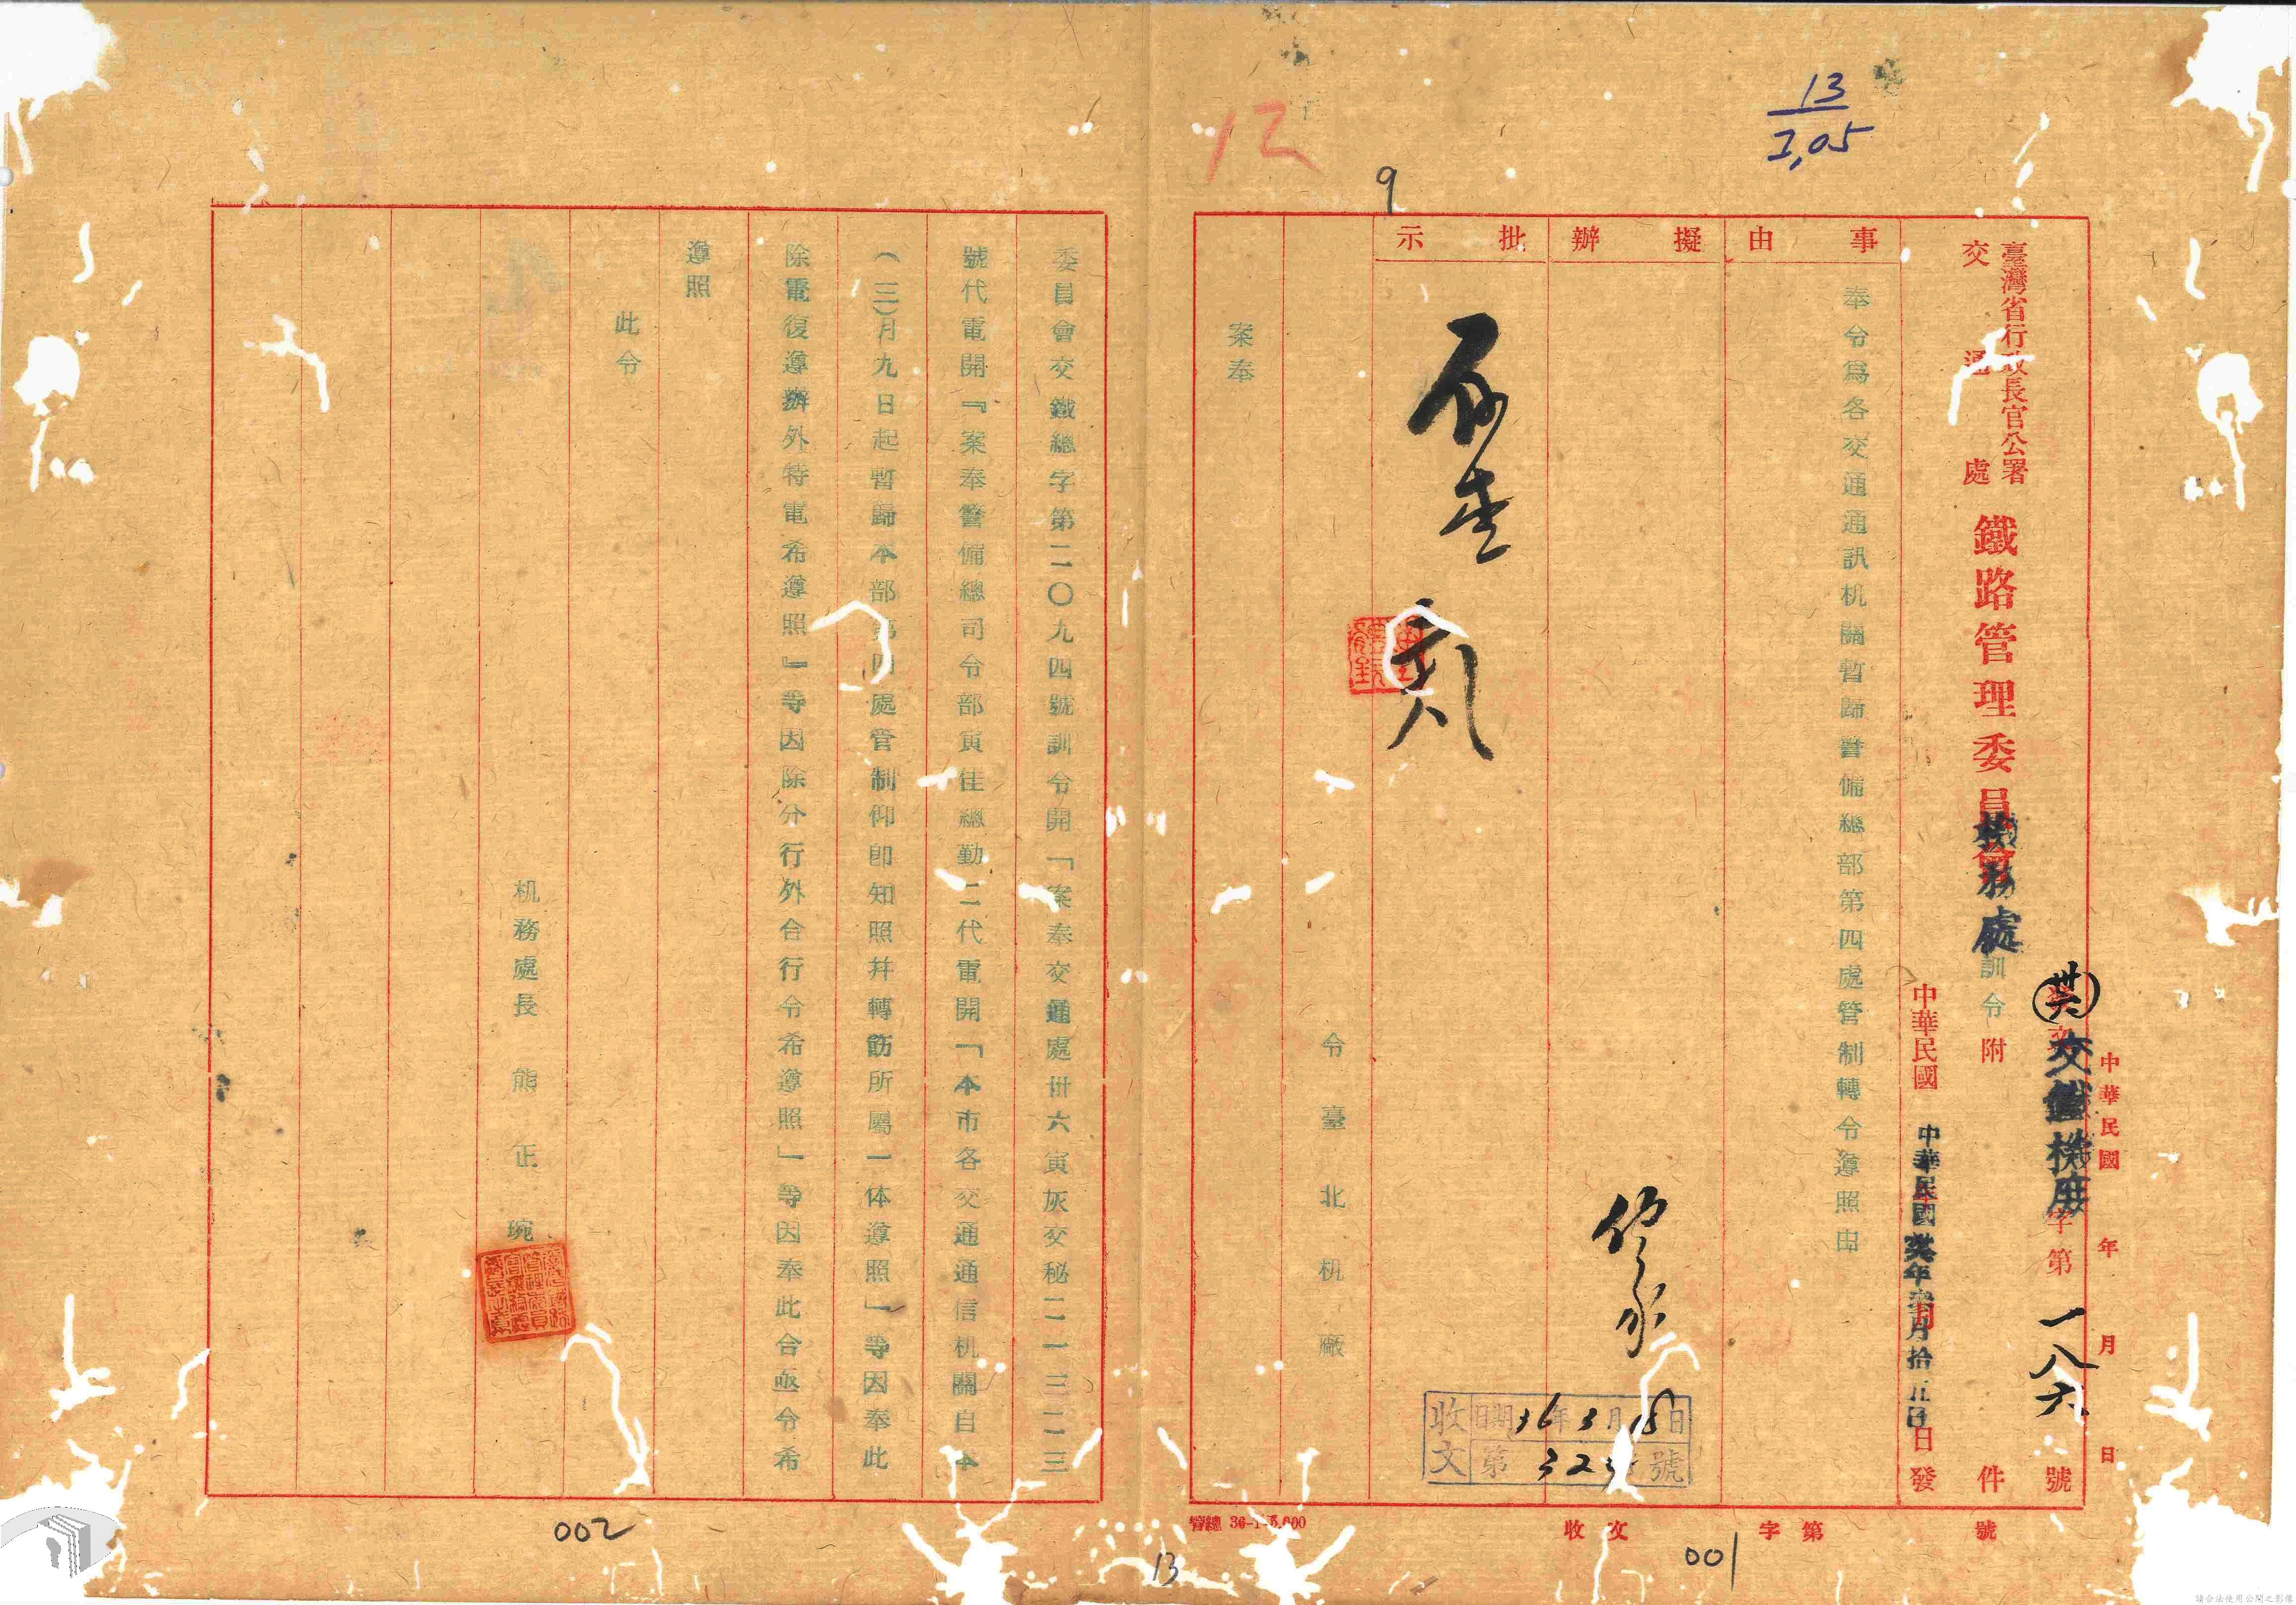 13
I,05
12
9
中華民國 年 月 日
卅六 交鐵機庶字第一八六號
臺灣省行政長官公署
交通處
鐵路管理委員會
機務處
訓令
附 件
中華民國 日發
中華民國卅六年叁月拾五日
事由
奉令爲各交通通訊机關暫歸警備總部第四處管制轉令遵照由
擬辦
批示
令臺北机廠
案奉
收文
日期36年3月18日
第 號
管總 36-1-5,000
收文 字第 號
001
委員會交鐵總字第二〇九四號訓令開「案奉交通處卅六寅灰交秘二一三二三
號代電開『案奉警備總司令部寅佳總勤二代電開「本市各交通通信机關自本
(三)月九日起暫歸本部第四處管制仰卽知照幷轉飭所屬一体遵照」等因奉此
除電復遵辦外特電希遵照』等因除分行外合行令希遵照」等因奉此合亟令希
遵照
此令
机務處長 熊正琬
002
13
請合法使用公開之影像